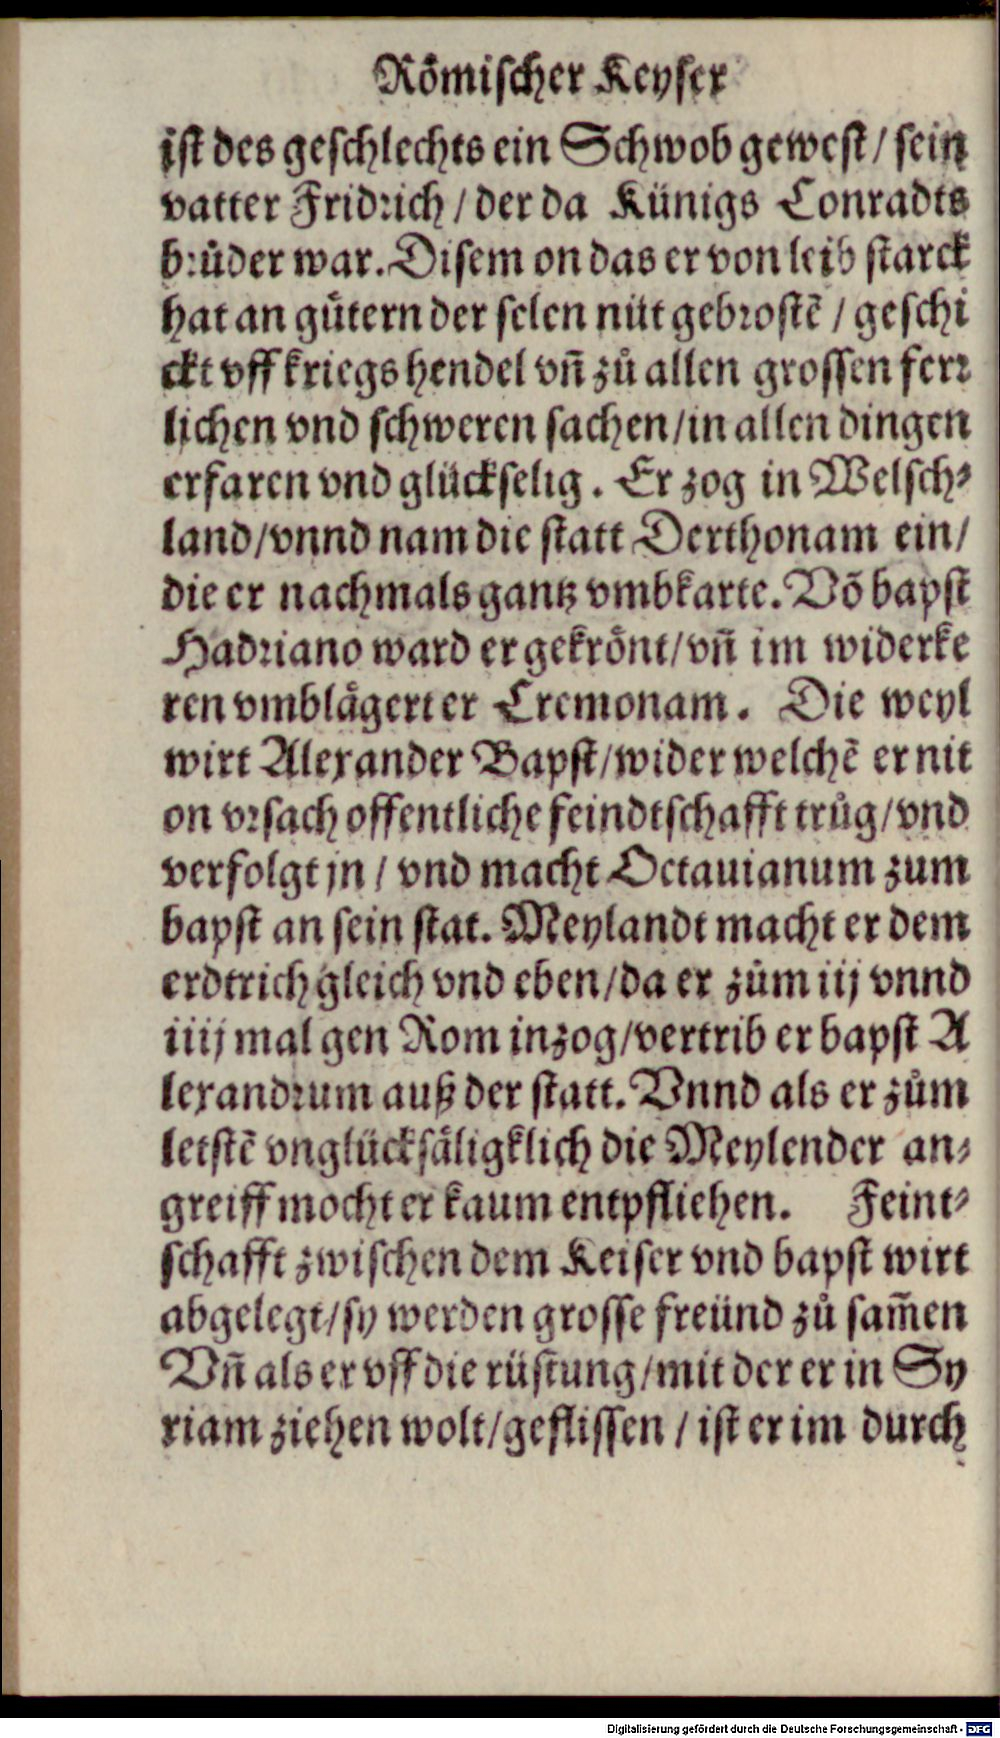 Roͤmischer Keyser
ist des geschlechts ein Schwob gewest / sein
vatter Fridrich / der da Künigs Conradts
bruͦder war. Disem on das er von leib starck
hat an guͤtern der selen nüt gebrostẽ / geschi
ckt vff kriegs hendel vñ zuͦ allen grossen ferr
lichen vnd schweren sachen / in allen dingen
erfaren vnd glückselig. Er zog in Welsch⸗
land / vnnd nam die statt Derthonam ein /
die er nachmals gantz vmbkarte. Võ bapst
Hadriano ward er gekroͤnt / vñ im widerke
ren vmblaͤgert er Cremonam. Die weyl
wirt Alexander Bapst / wider welchẽ er nit
on vrsach offentliche feindtschafft truͦg / vnd
verfolgt jn / vnd macht Octauianum zum
bapst an sein stat. Meylandt macht er dem
erdtrich gleich vnd eben / da er zuͦm iij vnnd
iiij mal gen Rom inzog / vertrib er bapst A
lexandrum auß der statt. Vnnd als er zuͦm
letstẽ vnglücksaͤligklich die Meylender an⸗
greiff mocht er kaum entpfliehen. Feint⸗
schafft zwischen dem Keiser vnd bapst wirt
abgelegt / sy werden grosse freünd zuͦ sam̃en
Vñ als er vff die rüstung / mit der er in Sy
riam ziehen wolt / geflissen / ist er im durch
Digitalisierung gefördert durch die Deutsche Forschungsgemeinschaft - DFG